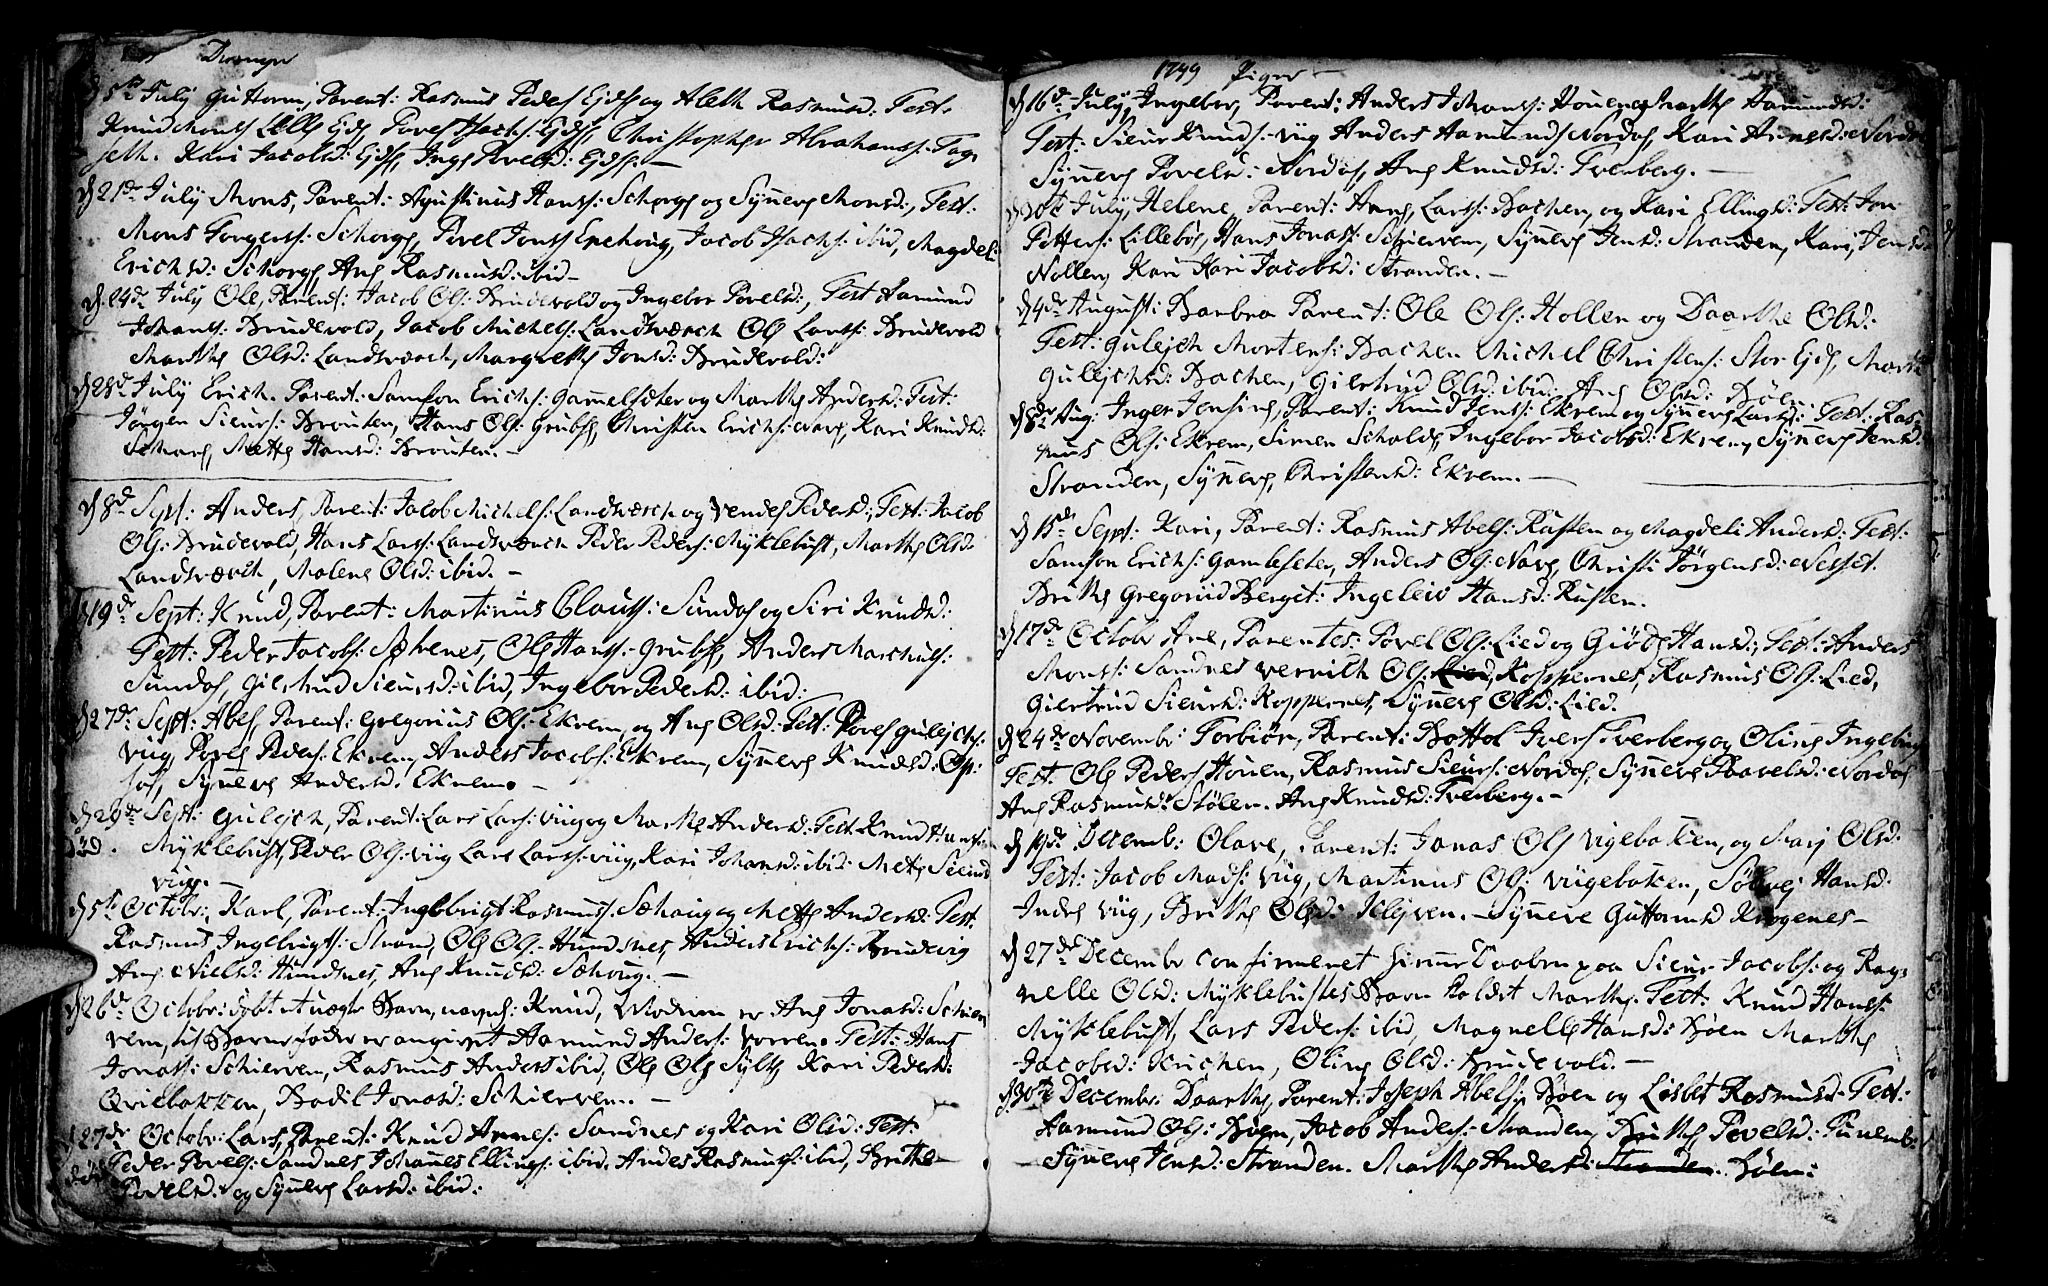 Drenge
d 5te July Guttorm, Parent: Rasmus Peders Ejds og Aleth Rasmusd: Test:
Knud Mons Lille Ejds Povel Isachs: Ejds, Christopher Abrahams: Fag-
seth. Kari Jacobsd: Ejds, Inge Povelsd: Ejds. —
d 21de July Mons, Parent: Agustinus Hans: Schorge og Synneve Monsd:, Test:
Mons Torgers: Schorge, Povel Jons Enehoug, Jacob Isachs: ibid, Magdeli
Erichsd: Schorge Ane Rasmusd: ibid —
d. 24de July Ole, Parent: Jacob Ols: Brudevold og Ingebor Povelsd:, Test Aamund
Johans: Brudevold, Jacob Michels: Landværch Ole Lars: Brudevold
Marthe Olsd: Landværch, Margrethe Jonsd: Brudevold:
d 28de July Erich. Parent: Samson Erichs: Gammelsæter og Marthe Andersd: Test:
Jørgen Siurs: Brouten, Hans Ols: Grubse, Christen Erichs: Nave, Kari Knudsd:
Mette Hansd: Brouten. —
d 8de Sept: Anders, Parent: Jacob Michels: Landværch og Vendel Pedersd:, Test: Jacob
Ols: Brudevold, Hans Lars: Landværch Peder Peders: Myklebust, Marthe Olsd:
Landværch, Malene Olsd: ibid. —
d 19de Sept: Knud, Parent: Martinus Clauss: Sundal og Siri Knudsd:
Test: Peder Jacobs: Ole Hans: Grubse, Anders
Giertrud Siursd: ibid, Ingebor Pedersd: ibid:
d 27de Sept: Abel, Parent: Gregorius Ols: Ekrem, og Ane Olsd: Test: Povel Gulejchs:
Viig, Povel Peders: Ekrem, Anders Jacobs: Ekrem, Synneve Knudsd: Op:
Synneve Andersd. Ekrem. —
d 29de Sept: Gulejch, Parent: Lars Lars: Viig og Marthe Andersd: Test: Knud Hans:
død. Myklebust, Peder Ols: Viig Lars Lars: Viig, Kari Johansd: ibid: Mette
Viig. —
d 5te Octobr: Karl, Parent: Ingebrigt Rasmus: Sæhoug og Mette Andersd: Test.
Rasmus Ingebrigts: Strand, Ole Ols: Hundsnes, Anders Erichs: Brudevig
Ane Nielsd: Hundsnes, Ane Knudsd: Sæhoug. —
d 26de Octobr: døbt et uægte Barn, nafnl: Knud, Modren er Ane Jonasd: Schier
vem, til Barnefader er angivet Aamund Anders: Test: Hans
Jonas: Schiervem, Rasmus Anders ibid, Ole Ols Sylte Kari Pedersd:
Qviebakken, Bodil Jonasd: Schiervem. —
d 27de Octobr: Lars, Parent: Knud Arnes: Sandnes og Kari Olsd: Test:
død Peder Povels: Sandnes Johannes Ellings: ibid. Anders Rasmus: ibid, Brithe —
Povelsd: og Synneve Larsd: ibid:
1749 Piger —
d 16de July, Ingebor, Parent: Anders Johans: Houen og Marthe Aamundsd:
Test: Siur Knuds: Viig Anders Aamunds Nordal, Kari Arnesd: Nordal
Synneve Povelsd: Nordal, Ane Knudsd: Tverberg. —
d 20de July, Helene, Parent: Arne, Lars: Bachen, og Kari Ellingsd: Test: Jon
Petters: Lillebøe, Hans Jonas: Schiervem, Synneve Jensd: Stranden, Kari, Jensd:
Nollen, Kari Jacobsd: Stranden. —
d 4de August: Barbra Parent: Ole Ols: Hollen og Daarthe Olsd:
Test: Gulejch Mortens: Bachen Michel Christens: Stor Ejds, Marthe
Gulejchsd: Bachen, Giertrud Olsd: ibid: Ane Olsd: Bøen.
d 8de Aug: Inger Jensine, Parent: Knud Jens: Ekrem og Synneve Larsd: Test: Ras-
mus Ols: Ekrem, Simen Scholde, Ingebor Jacobsd: Ekrem, Synneve Jensd:
Stranden, Synneve, Christensd: Ekrem. —
d 15de Sept: Kari, Parent: Rasmus Abels: Rusten og Magdeli Andersd: Test:
Samson Erichs: Gamleseter, Anders Ols: Nave, Christi Jørgensd: Nesset.
Brithe Gregoriid Berget: Ingeleiv Hansd: Rusten.
d 17de Octobr Ane, Parentes: Povel Ols: Lied og Giøde Hansd:, Test: Anders
Mons: Sandnes Vernich Ols: Lied, Koppernes, Rasmus Ols: Lied,
Giertrud Siursd: Koppernes, Synneve Olsd: Lied.
d 24de Novembr: Torbiør, Parent: Bottol Ivers Tverberg og Oline
Test. Ole Peders Houen, Rasmus Siurs: Nordal, Synneve Paavelsd: Nordal
Ane Rasmusd: Stølen. Ane Knudsd: Tverberg. —
d 19de Decemb: Olave, Parent: Jonas Ols Vigebaken, og Marj Olsd:
Test: Jacob Mads: Viig, Martinus Ols: Viigebaken, Sølvej Hansd:
Indre Viig, Brithe Olsd: Klejven. — Synneve Guttormsd Krogenes —
d 27de Decembr confirmeret hiemme Daaben paa Siur Jacobs: og Rag-
nelle Olsd: Myklebustes Barn kaldet Marthe. Test: Knud Hans:
Myklebust, Lars Peders: ibid, Magnelle Hansd: Bøen Marthe
Jacobsd: Krichen, Oline Olsd: Brudevold. —
d 30te Decembr: Daarthe, Parent: Joseph Abels: Bøen og Lisbet Rasmusd: Test:
Aamund Ols: Bøen, Jacob Anders: Stranden, Brithe Povelsd: Tunemb:
— Synneve Jensd: Stranden. Marthe Andersd: Stranden. Bøen: